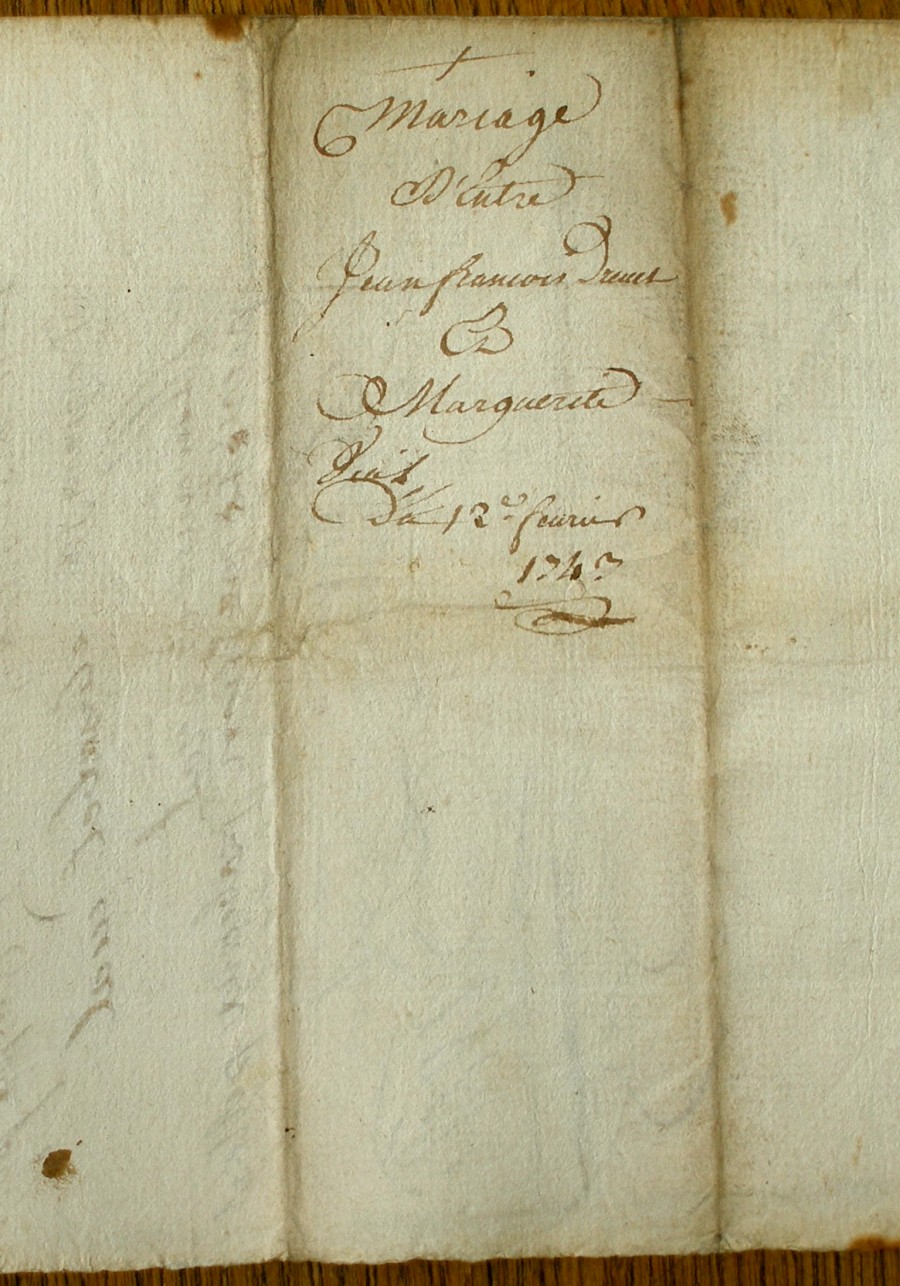 Mariage
D'Entre
Jean francois Drouet
Et
Marguerite
Du 12e feurier
1743